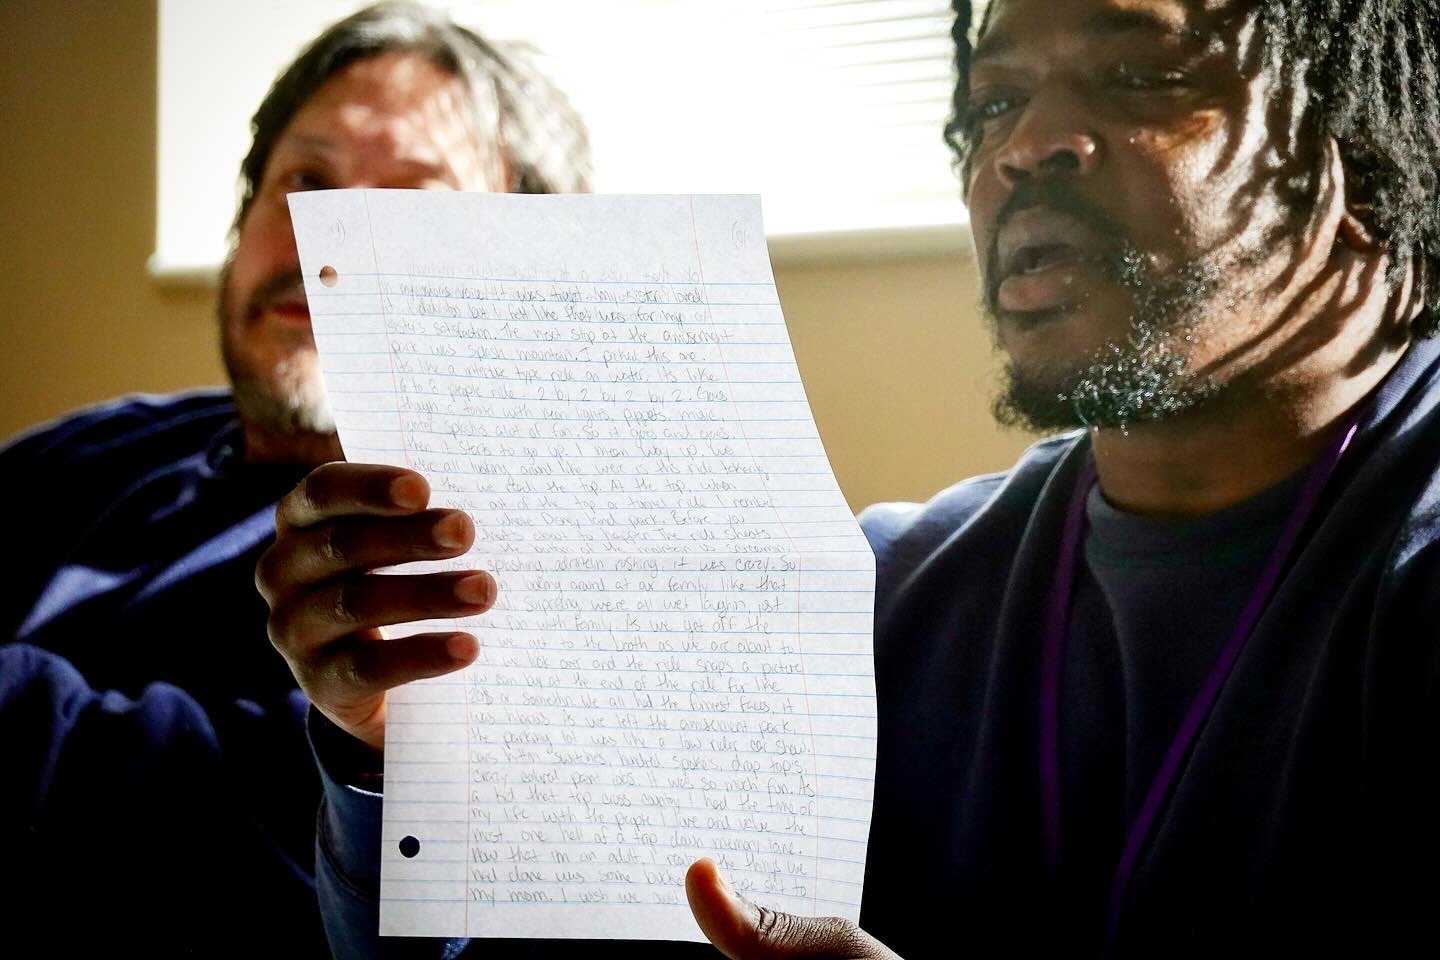 in my it was that my sister loved
it also to but I felt like that was for my
sister's satisfaction. The next stop at the amusement
park was splash mountain. I picked this one.
Its like a type ride on water, its like
6 to 8 people ride 2 by 2 by 2 by 2. Goes
through a with neon lights, puppets, music,
water splashs alot of fun. So it goes and goes,
then it starts to go up. I mean way up. We
all looking around like were is this ride taken
then we reach the top. At the top, when
out of the top a tunnel ride I rember
whole Disney land park. Before you
about to happen the ride shoots
the bottom of the mountain us screamin,
water splashing, adrenalin rushing, it was crazy. So
looking around at our family like that
surprising were all wet laughin, just
fun with family. As we get off the
we get to the booth as we are about to
we look over and the ride snaps a picture
can buy at the end of the ride for like
20$ or somethin we all had the funniest faces, it
was hilarious. As we left the amusement park,
the parking lot was like a low rider car show.
cars hitten switches, hundred spokes, drop top's,
crazy colored paint jobs. It was so much fun. As
a kid that trip cross country I had the time of
my life with the people I love and value the
most, one hell of a trip down memory lane.
Now that im an adult, I the things we
had done was some bucket type shit to
my mom. I wish we